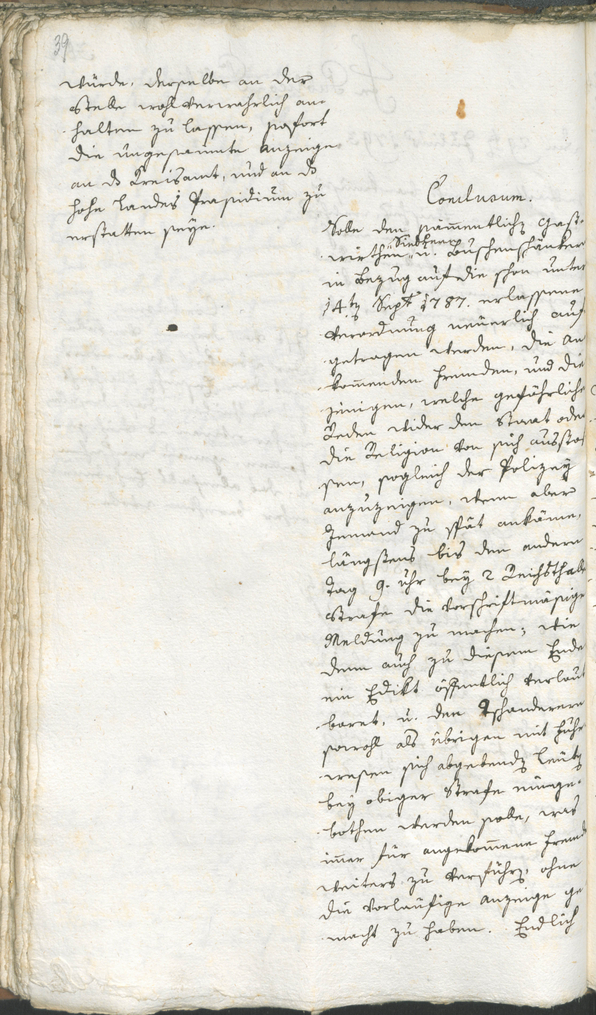 39
würde, derselbe an der
Stelle wohl verwahrlich an-
halten zu lassen, sofort
die ungesaumte Anzeige
an das Kreisamt, und an das
hohe Landes Praesidium zu
erstatten seye.
Conclusum.
Solle den sämentlichen Gast-
wirthen, Siedkener u. Buschenschänkern
in Bezug auf die schon unter
14ten Septr 1787. erlassene
Verordnung neuerlich auf
getragen werden, die an
kommenden Fremden, und die
jenigen, welche gefährliche
Reden wider den Staat oder
die Religion von sich aussto
ssen, sogleich der Polizey
anzuzeigen, wenn aber
Jemand zu spät ankäme,
längstens bis den andern
Tag 9. Uhr bey 2 Reichsthal
Strafe die vorschriftmäsige
Meldung zu machen; wie
denn auch zu diesem Ende
ein Edikt öffentlich verlaut
baret, u. den Tschanderern
sowohl als übrigen mit Fuhr
wesen sich abgebenden Leuten
bey obiger Strafe einge-
bothen werden solle, was
imer für angekommene Fremde
weiters zu verführen, ohne
die vorläufige Anzeige ge
macht zu haben. Endlich